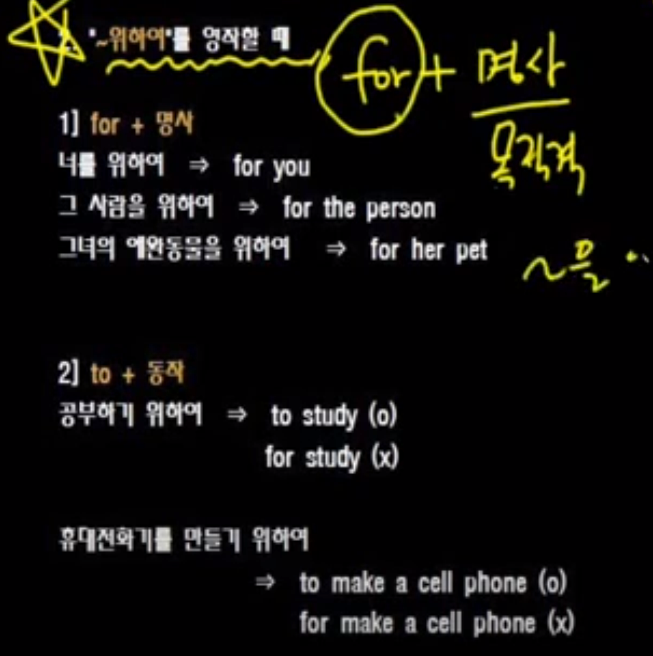 2. "~위하여"를 영작할 때
for + 명사
목적격
1] for + 명사
너를 위하여 ⇒ for you
그 사람을 위하여 ⇒ for the person
그녀의 애완동물을 위하여 ⇒ for her pet
~을
2] to + 동작
공부하기 위하여 ⇒ to study (o)
for study (x)
휴대전화기를 만들기 위하여
⇒ to make a cell phone (o)
for make a cell phone (x)